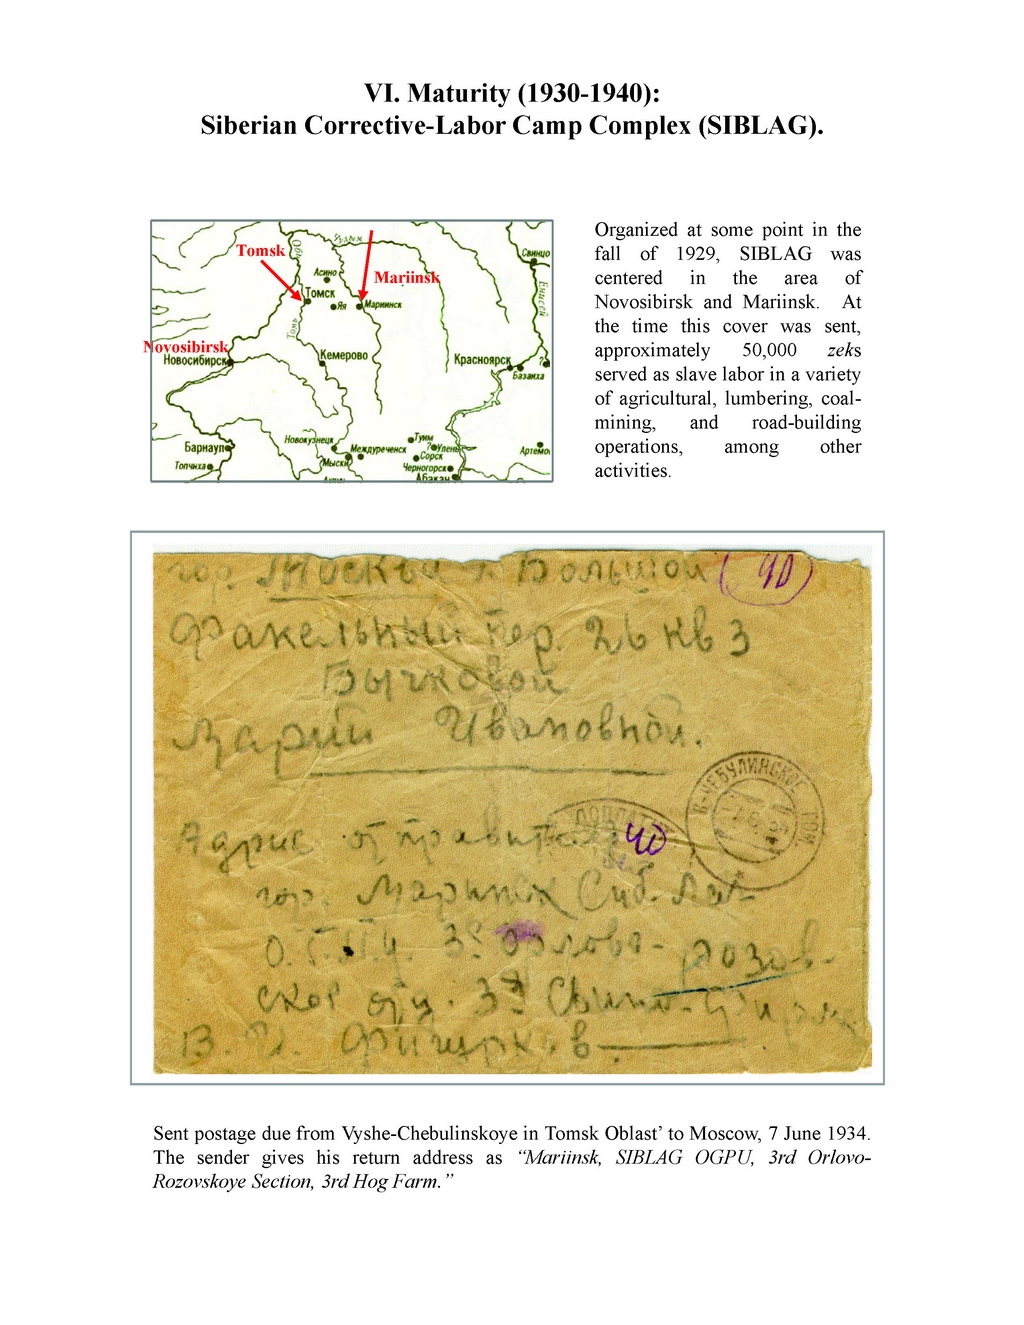 VI. Maturity (1930-1940):
Siberian Corrective-Labor Camp Complex (SIBLAG).
Обь
Чулым
Свинцо
Tomsk
Асино
Mariinsk
Енисей
Томск
Яя
Мариинск
Томь
Novosibirsk
Новосибирск
Кемерово
Красноярск
?
Базаиха
Барнаул
Новокузнецк
Междуреченск
Туим
?Улень
Артемо
Топчиха
Мыски
Сорск
Черногорск
Абакан
Organized at some point in the
fall of 1929, SIBLAG was
centered in the area of
Novosibirsk and Mariinsk. At
the time this cover was sent,
approximately 50,000 zeks
served as slave labor in a variety
of agricultural, lumbering, coal-
mining, and road-building
operations, among other
activities.
гор. Москва Большой 40
Факельный пер. 26 кв 3
Бычковой
Марии Ивановной.
В-ЧЕБУЛИНСКОЕ ТОМ
Адрис отправителя 40
гор. Маринск Сиб. Лаг
О.Г.П.У. 3е Орлово-розов-
ское отд. 3я Свино-Фирма
В. И. Фигурков
Sent postage due from Vyshe-Chebulinskoye in Tomsk Oblast’ to Moscow, 7 June 1934.
The sender gives his return address as “Mariinsk, SIBLAG OGPU, 3rd Orlovo-
Rozovskoye Section, 3rd Hog Farm.”